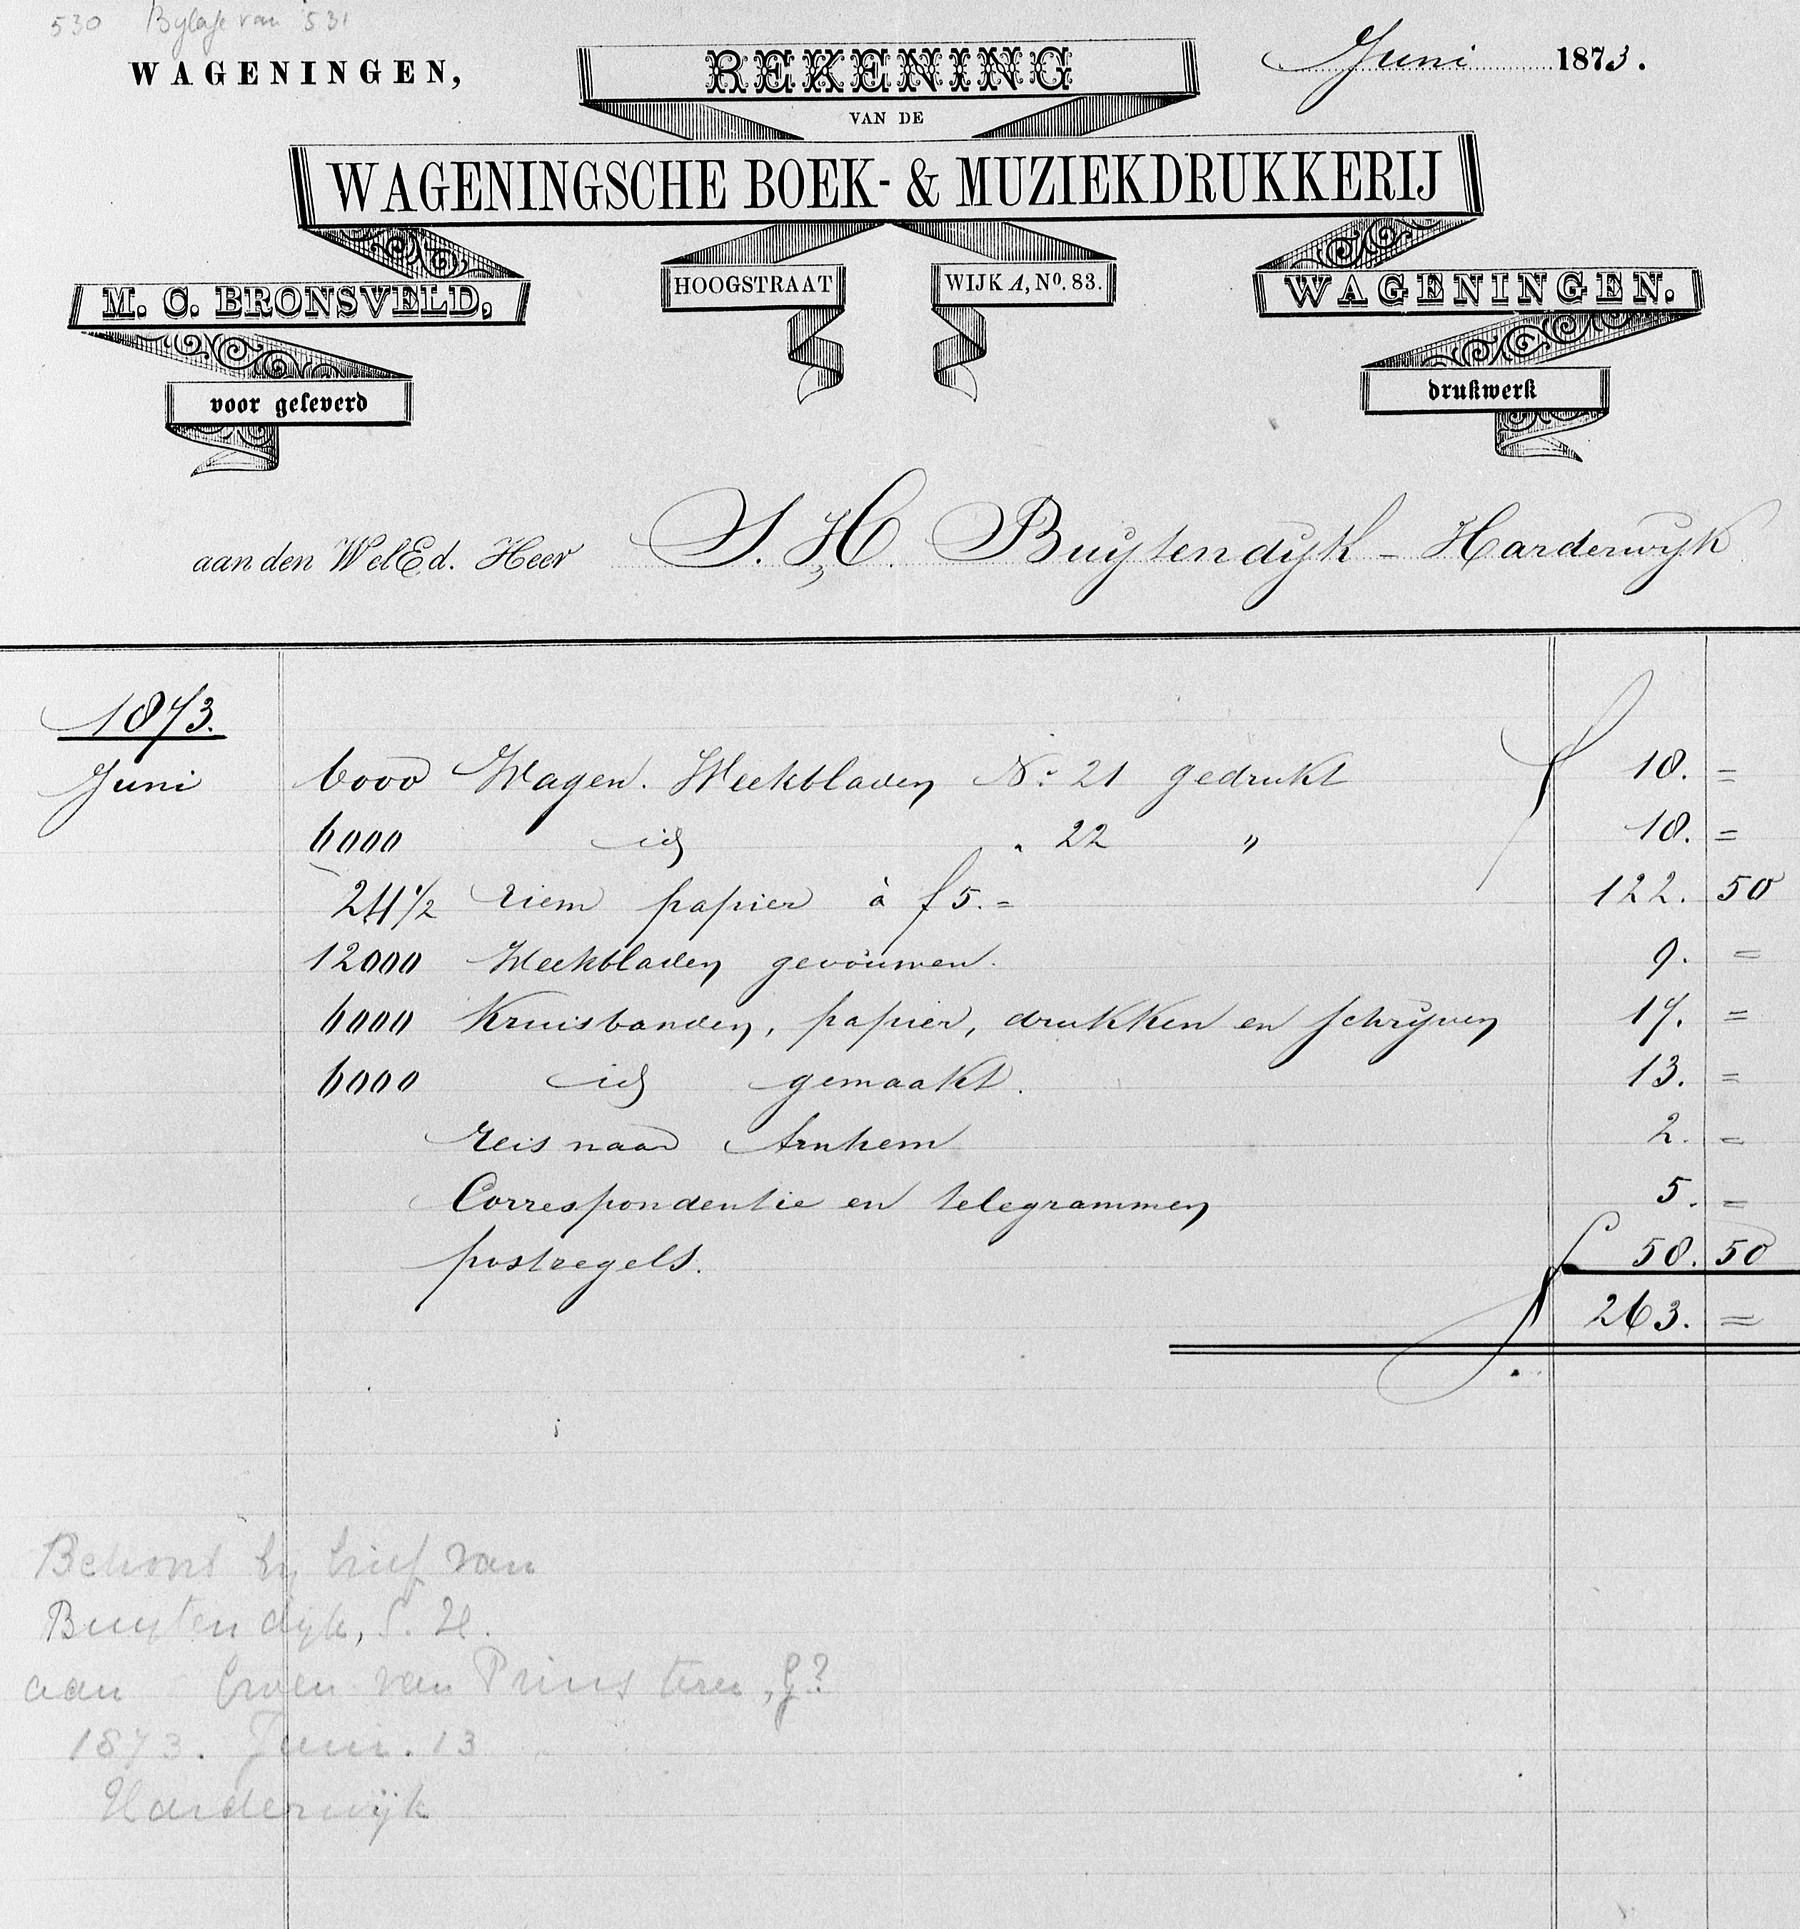 530 Bylage van 531
WAGENINGEN,
REKENING
Juni 1873.
VAN DE
WAGENINGSCHE BOEK- & MUZIEKDRUKKERIJ
M. C. BRONSVELD,
HOOGSTRAAT
WIJK A, No. 83.
WAGENINGEN.
voor geleverd
drukwerk
aan den WelEd. Heer S. H. Buytendyk - Harderwyk
1873.
Juni 6000 Wagen. Weekbladen No 21 gedrukt f 18. =
6000 id " 22 " 18. =
24 1/2 riem papier à f 5. = 122. 50
12000 Weekbladen gevouwen. 9. =
6000 Kruisbanden, papier, drukken en schrijven 17. =
6000 id gemaakt. 13. =
reis naar Arnhem 2. =
Correspondentie en telegrammen 5. =
postzegels. f 58. 50
f 263. =
Behoort bij brief van
Buytendijk, S. H.
aan Groen van Prinsterer, G?
1873. Juni. 13
Harderwijk